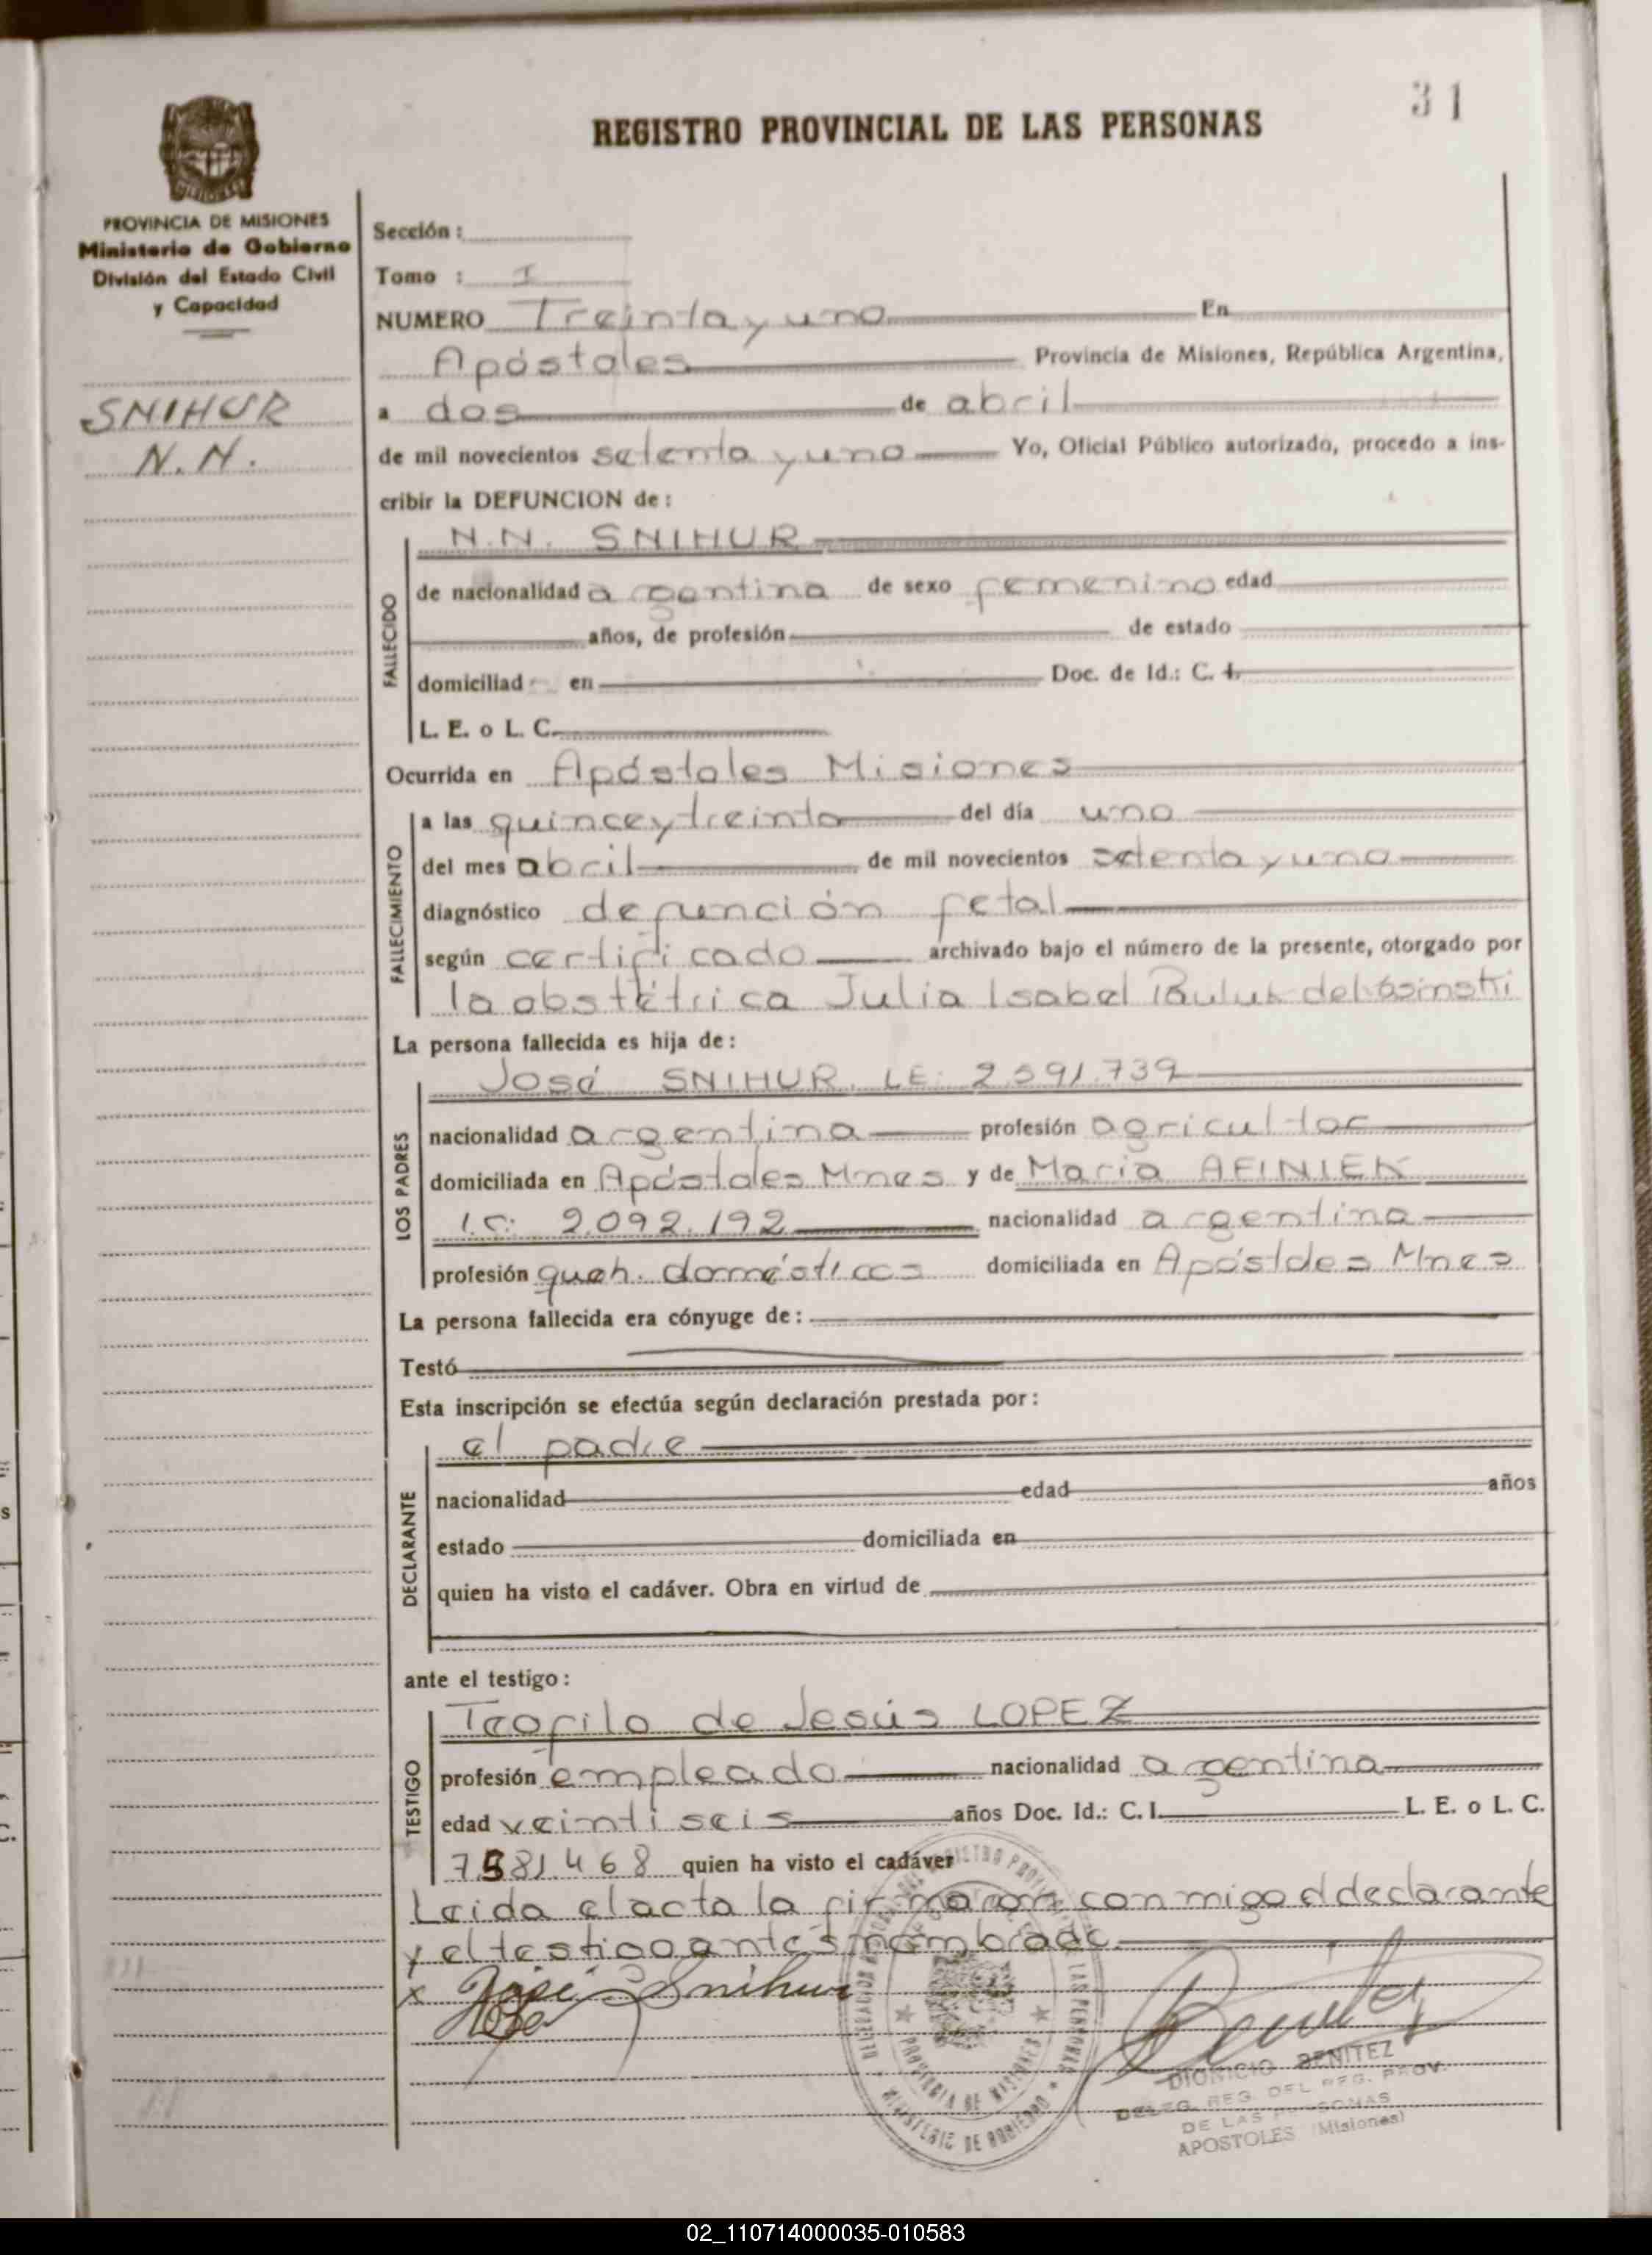 31
REGISTRO PROVINCIAL DE LAS PERSONAS
PROVINCIA DE MISIONES
Ministerio de Gobierno
División del Estado Civil
y Capacidad
SNIHUR
N.N.
Sección :
Tomo : I
NUMERO Treinta y uno En
Apóstoles Provincia de Misiones, República Argentina,
a dos de abril
de mil novecientos setenta y uno Yo, Oficial Público autorizado, procedo a ins-
cribir la DEFUNCION de :
N.N. SNIHUR
FALLECIDO
de nacionalidad argentina de sexo femenino edad
años, de profesión de estado
domiciliad en Doc. de Id.: C. I.
L. E. o L. C.
Ocurrida en Apóstoles Misiones
FALLECIMIENTO
a las quince y treinta del día uno
del mes abril de mil novecientos setenta y uno
diagnóstico defunción fetal
según certificado archivado bajo el número de la presente, otorgado por
la obstétrica Julia Isabel
La persona fallecida es hija de :
LOS PADRES
José SNIHUR. LE: 2.591.739
nacionalidad argentina profesión agricultor
domiciliada en Apóstoles Mnes y de María AFINIEK
2.092.192 nacionalidad argentina
profesión queh. domésticos domiciliada en Apóstoles Mnes
La persona fallecida era cónyuge de :
Testó
Esta inscripción se efectúa según declaración prestada por :
DECLARANTE
el padre
nacionalidad edad años
estado domiciliada en
quien ha visto el cadáver. Obra en virtud de
ante el testigo :
TESTIGO
Teofilo de Jesús LOPEZ
profesión empleado nacionalidad argentina
edad veintiseis años Doc. Id.: C. I. L. E. o L. C.
7.581.468 quien ha visto el cadáver
Leida el acta la firmaron conmigo el declarante
y el testigo antes nombrado.
x José Snihur
DIONICIO BENITEZ
DELEG. REG. DEL REG. PROV.
DE LAS PERSONAS
APOSTOLES (Misiones)
PROVINCIA DE MISIONES
MINISTERIO DE GOBIERNO
02_110714000035-010583